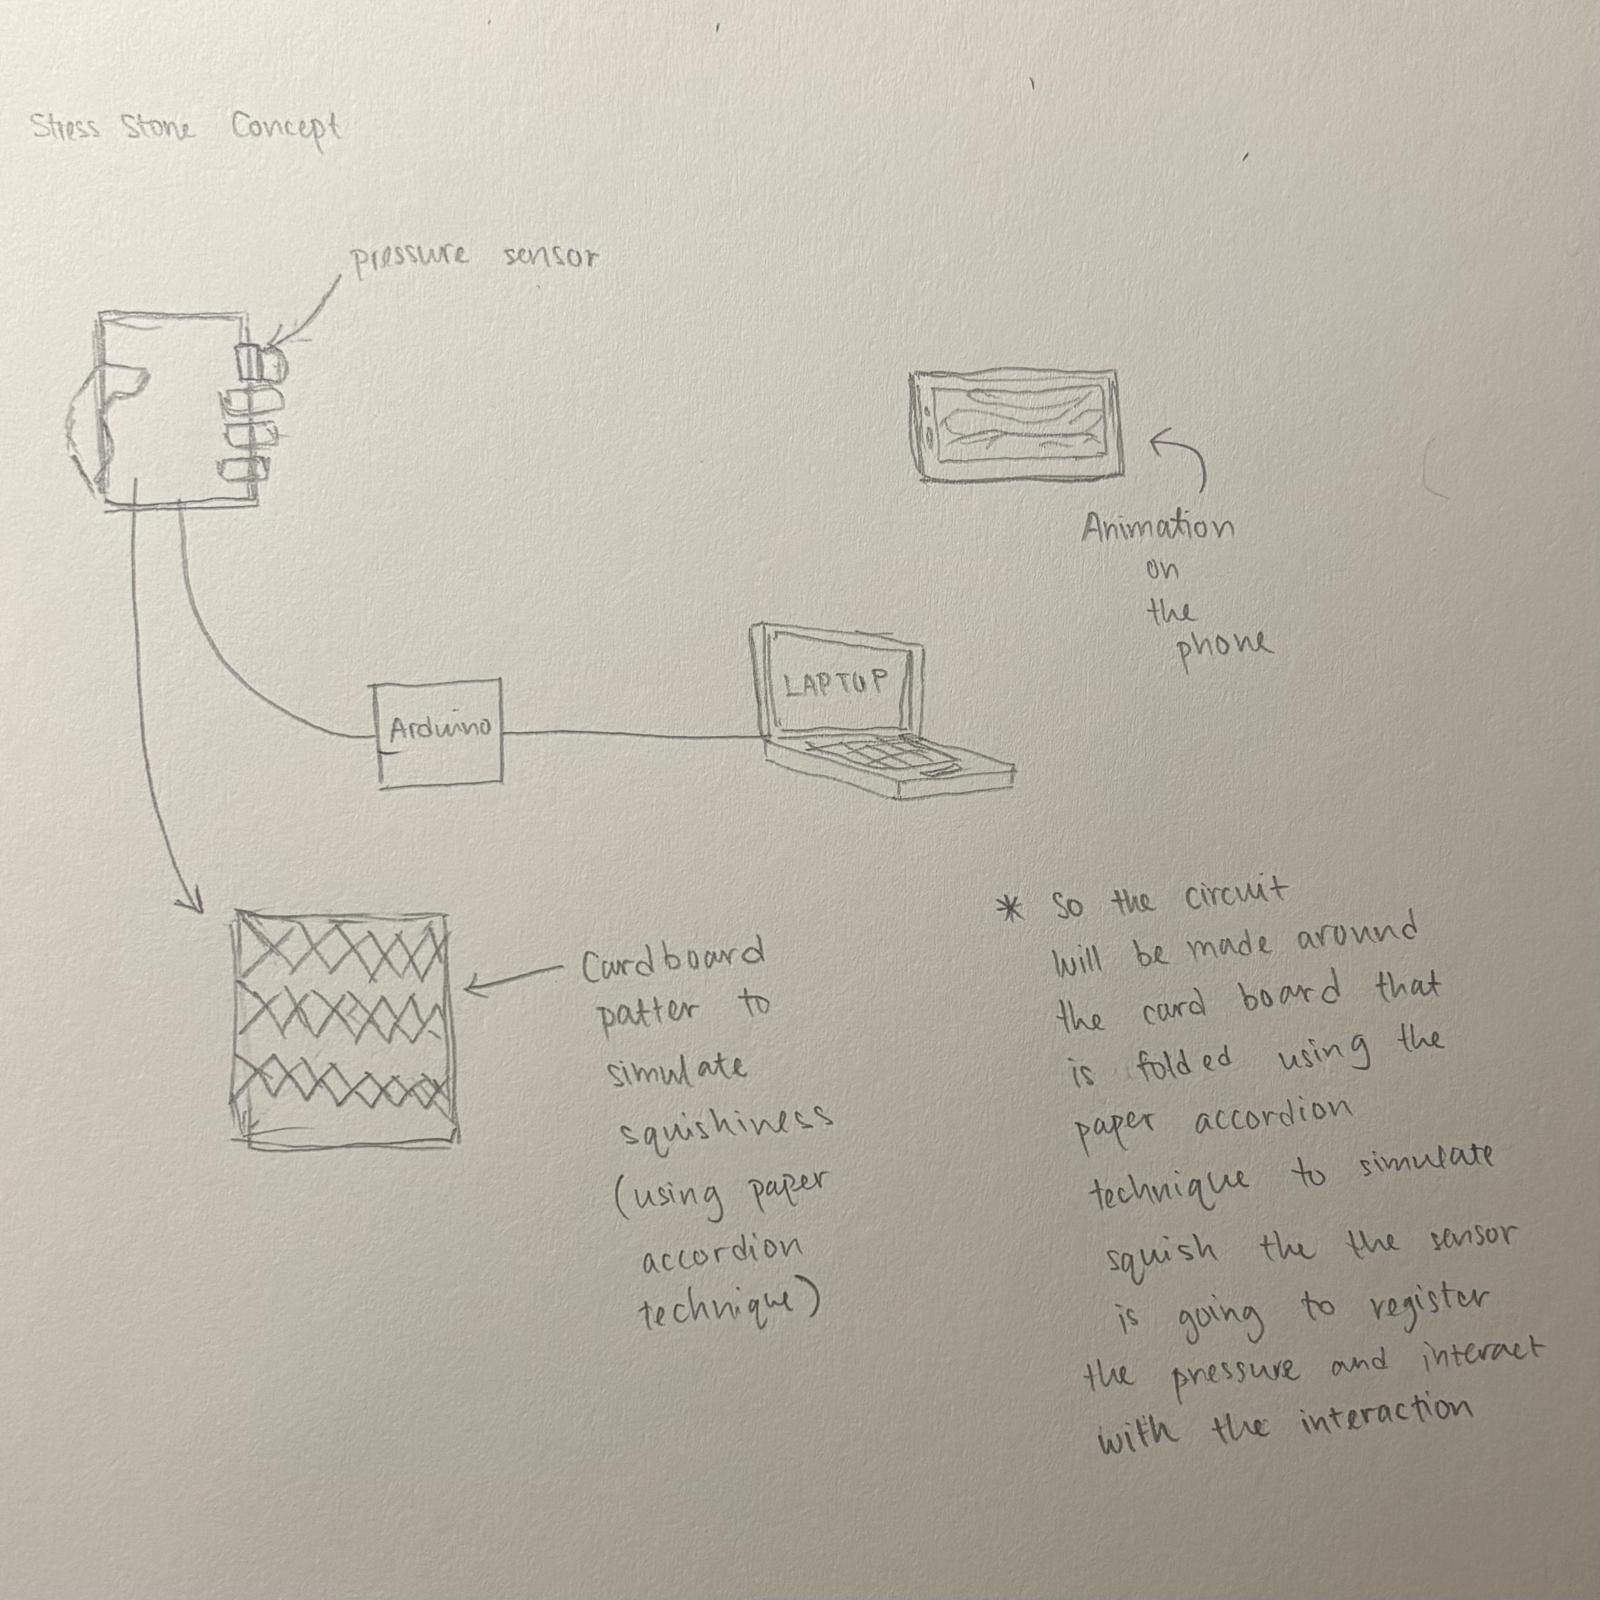 Stress Stone Concept
pressure sensor
Animation
on
the
phone
LAPTOP
Arduino
Cardboard
patter to
simulate
squishiness
(using paper
accordion
technique)
* So the circuit
will be made around
the card board that
is folded using the
paper accordion
technique to simulate
squish the the sensor
is going to register
the pressure and interact
with the interaction